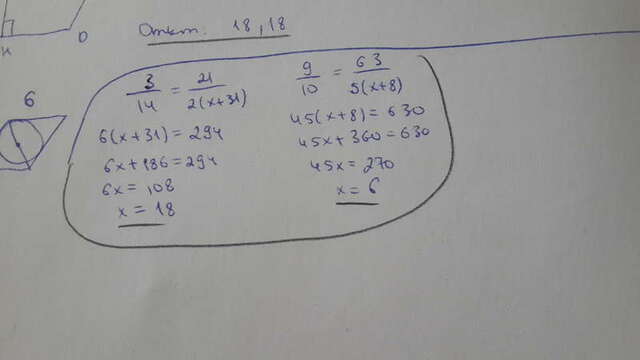 O
6
Ответ: 18,18
3/14 = 21/2(x+31)
6(x+31) = 294
6x+186=294
6x=108
x=18
9/10 = 63/5(x+8)
45(x+8)=630
45x+360=630
45x=270
x=6